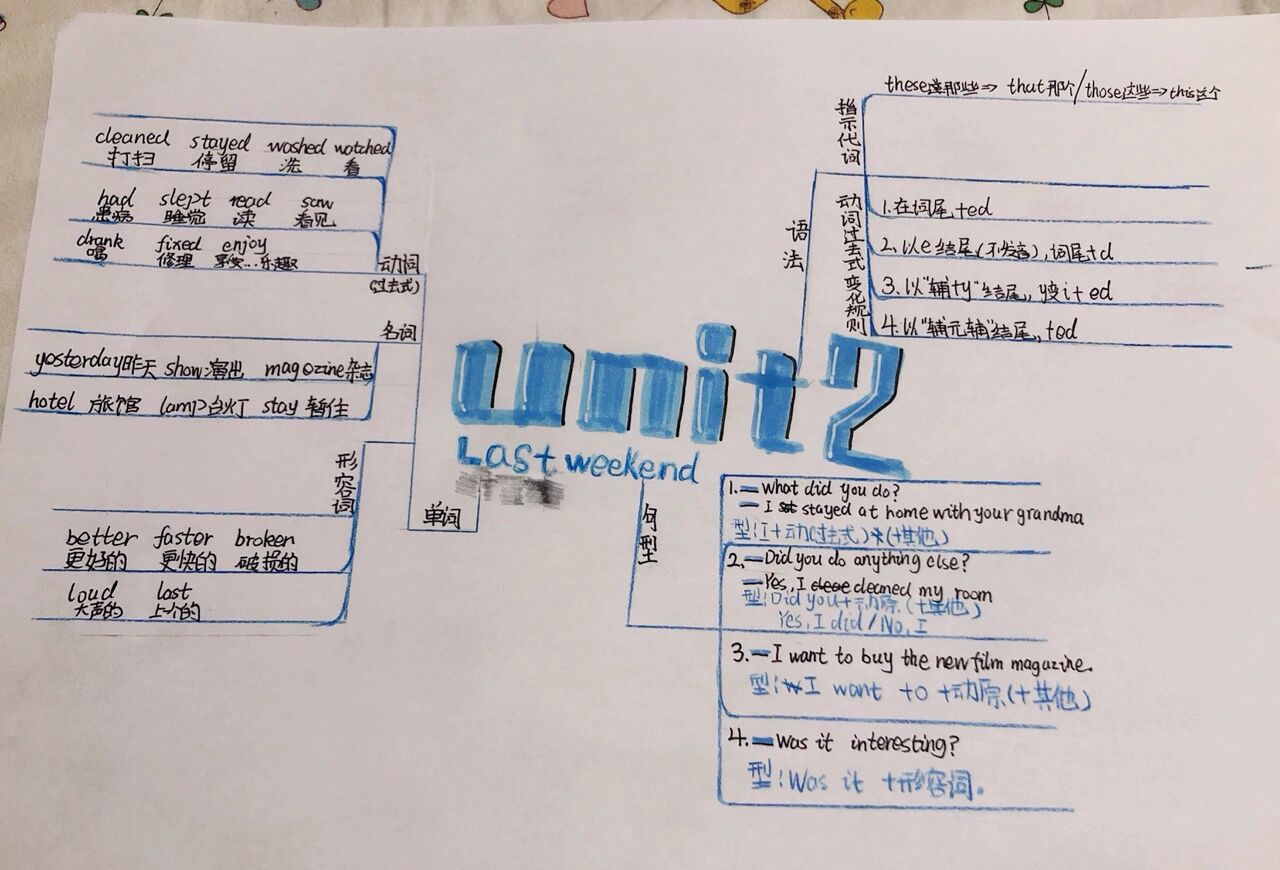 unit2
Last weekend
单词
动词
(过去式)
cleaned stayed washed watched
打扫 停留 洗 看
had slept read saw
患病 睡觉 读 看见
drank fixed enjoy
喝 修理 享受…乐趣
名词
yesterday昨天 show演出 magazine杂志
hotel 旅馆 lamp台灯 stay 暂住
形容词
better faster broken
更好的 更快的 破损的
loud last
大声的 上个的
语法
指示代词
these这那些⇒ that那个/those这些⇒this这个
动词过去式变化规则
1.在词尾+ed
2.以e结尾(不发音),词尾+d
3.以"辅+y"结尾,y变i+ed
4.以"辅元辅"结尾,+ed
句型
1.—What did you do?
—I stayed at home with your grandma
型:I+动(过去式)(+其他)
2.—Did you do anything else?
—Yes, I cleaned my room
型:Did you+动原(+其他)
Yes, I did/No, I
3.—I want to buy the new film magazine.
型:I want to +动原(+其他)
4.—Was it interesting?
型:Was it +形容词。